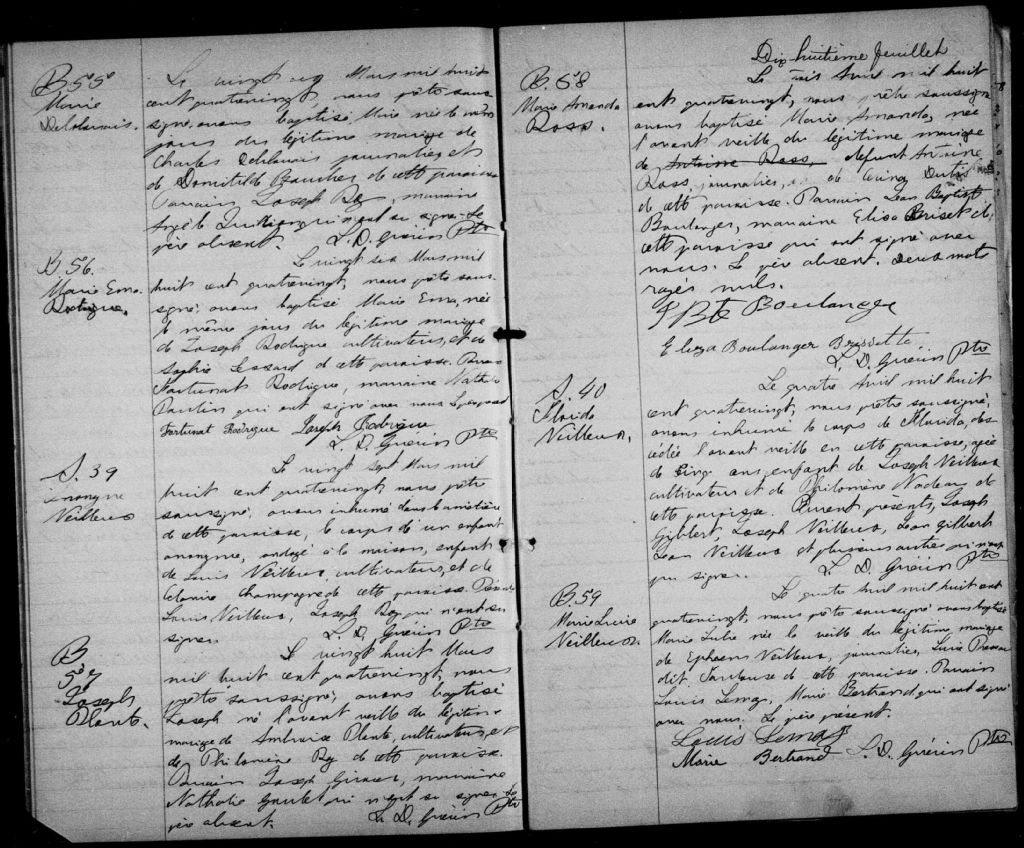 B. 55
Marie
Le vingt Mars mil huit
cent quatrevingt, nous prêtre sous-
signé, avons baptisé Marie née le même
jour du légitime mariage de
Charles journalier, et
de Domitilde Boucher de cette paroisse
Parrain Joseph Roy, marraine
Angèle qui n'ont su signer. Le
père absent. L. D. Guérin Ptre
B. 56.
Marie Ema
Rodrigue.
Le vingt six Mars mil
huit cent quatrevingt, nous prêtre sous-
signé, avons baptisé Marie Ema, née
le même jour du légitime mariage
de Joseph Rodrigue cultivateur, et de
Sophie Lessard de cette paroisse. Parrain
Fortunat Rodrigue, marraine Nathalie
Poulin qui ont signé avec nous
Fortunat Rodrigue Joseph Rodrigue
L. D. Guérin Ptre
S. 39
Anonyme
Veilleux
Le vingt sept Mars mil
huit cent quatrevingt, nous prêtre
soussigné, avons inhumé dans le cimetière
de cette paroisse, le corps d'un enfant
anonyme, ondoyé à la maison, enfant
de Louis Veilleux, cultivateur, et de
Champagne de cette paroisse. Présents
Louis Veilleux, Joseph Roy qui n'ont su
signer. L. D. Guérin Ptre
B
57
Joseph
Plante.
Le vingt huit Mars
mil huit cent quatrevingt, nous
prêtre soussigné, avons baptisé
Joseph né l'avant veille du légitime
mariage de Ambroise Plante, cultivateur, et
de Philomène Roy de cette paroisse.
Parrain Joseph Giroux, marraine
Nathalie Goulet qui n'ont su signer. Le
père absent. L. D. Guérin Ptre
Dix huitième feuillet
B. 58
Marie Amanda
Ross.
Le trois Avril mil huit
cent quatrevingt, nous prêtre soussigné
avons baptisé Marie Amanda, née
l'avant veille du légitime mariage
de Antoine Ross, defunt Antoine
Ross, journalier, et de
de cette paroisse. Parrain Jean Baptiste
Boulanger, marraine Elisa Briset de
cette paroisse qui ont signé avec
nous. Le père absent. Deux mots
rayés nuls.
J Bte Boulanger
Eliza Boulanger Brissette.
L. D. Guérin Ptre
S. 40
Florida
Veilleux.
Le quatre Avril mil huit
cent quatrevingt, nous prêtre soussigné,
avons inhumé le corps de Florida, dé-
cédée l'avant veille en cette paroisse, agée
de cinq ans, enfant de Joseph Veilleux
cultivateur et de Philomène Nadeau de
cette paroisse. Furent présents, Joseph
Gilbert, Joseph Veilleux, Jean Gilbert
Jean Veilleux et plusieurs autres qui n'ont
pu signer. L. D. Guérin Ptre
B. 59
Marie Lucie
Veilleux.
Le quatre Avril mil huit cent
quatrevingt, nous prêtre soussigné avons baptisé
Marie Julie née la veille du légitime mariage
de Ephrem Veilleux, journalier, Lucie
dit Toulouse de cette paroisse. Parrain
Louis Lemay, Marie Bertrand, qui ont signé
avec nous. Le père présent.
Louis Lemay
Marie Bertrand L. D. Guérin Ptre